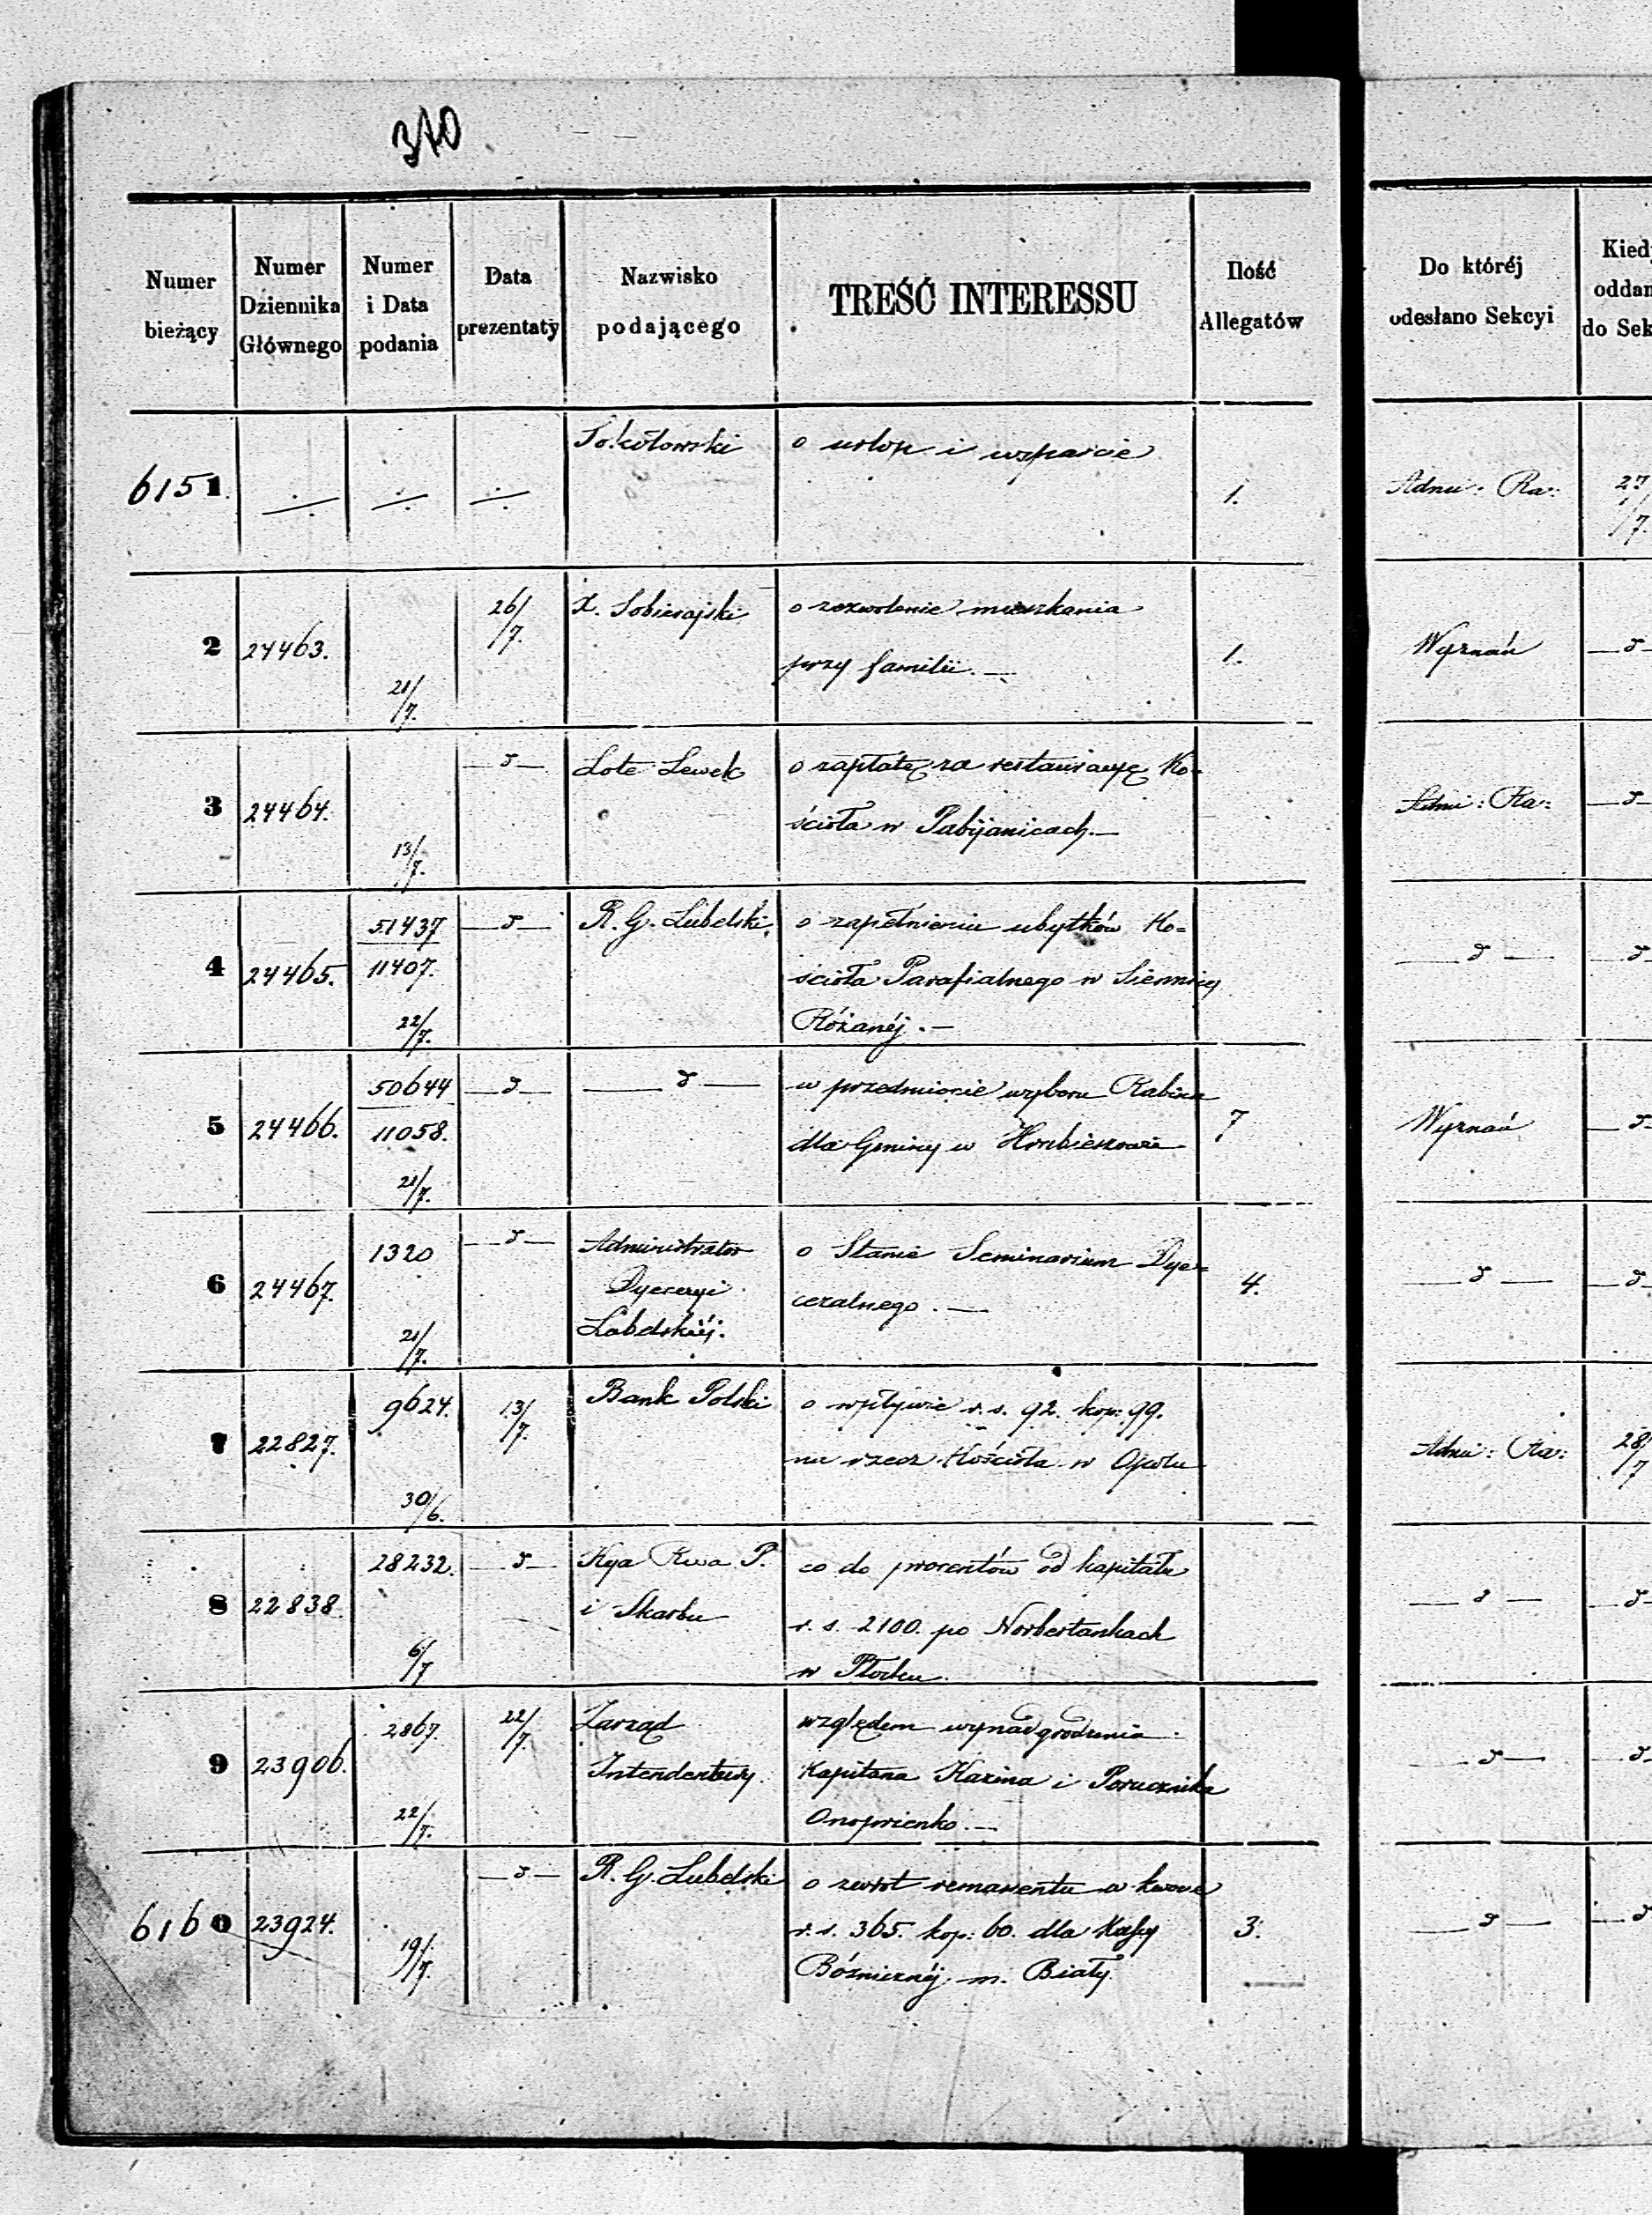 310
Numer bieżący
Numer Dziennika Głównego
Numer i Data podania
Data prezentaty
Nazwisko podającego
TREŚĆ INTERESSU
Ilość Allegatów
Do któréj odesłano Sekcyi
Kiedy
oddan
do Sek
6151. ·/· ·/· ·/· Sokołowski o urlop i wsparcie 1. Admi: Ra: 27/7.
2 24463. 21/7. 26/7. X. Sobierajski o zezwolenie mieszkania
przy familii. — 1. Wyznań — d —
3 24464. 13/7. — d — Lote Lewek o zapłatę za restauracyę Ko=
ścioła w Pabijanicach. — Admi: Ra: — d —
4 24465. 51437
11407. 22/7. — d — R. G. Lubelski. o zapełnieniu ubytków Ko=
ścioła Parafialnego w Siennicy
Różanéj. — — d — — d —
5 24466. 50644
11058. 21/7. — d — — d — w przedmiocie wyboru Rabina
dla Gminy w Hrubieszowie 7 Wyznań — d —
6 24467. 1320 21/7. — d — Administrator
Dyecezyi
Lubelskiéj. o Stanie Seminarium Dye=
cezalnego. — 4. — d — — d —
7 22827. 9624. 30/6. 13/7. Bank Polski o wpływie r. s. 92. kop: 99.
na rzecz Kościoła w Admi: Ra: 28/7
8 22838. 28232. 6/7 — d — Kya Rwa P.
i Skarbu co do procentów od kapitału
r. s. 2100. po Norbertankach
w Płocku. — d — — d —
9 23906. 2867. 22/7. 22/7. Zarząd
Intendentury. względem wynadgrodzenia
Kapitana Kazina i Porucznika
Onoprienko. — — d — — d —
6160 23924. 19/7. — d — R. G. Lubelski o zwrot remanentu w kwocie
r. s. 365. kop: 60. dla Kassy
Bóżniczéj m. Biały 3. — d — — d —